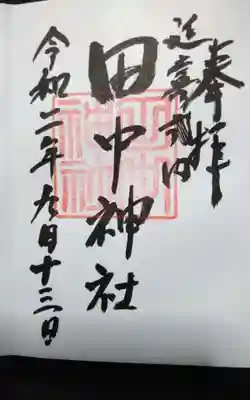 奉拝
延喜式内
田中神社
令和二年九月十三日